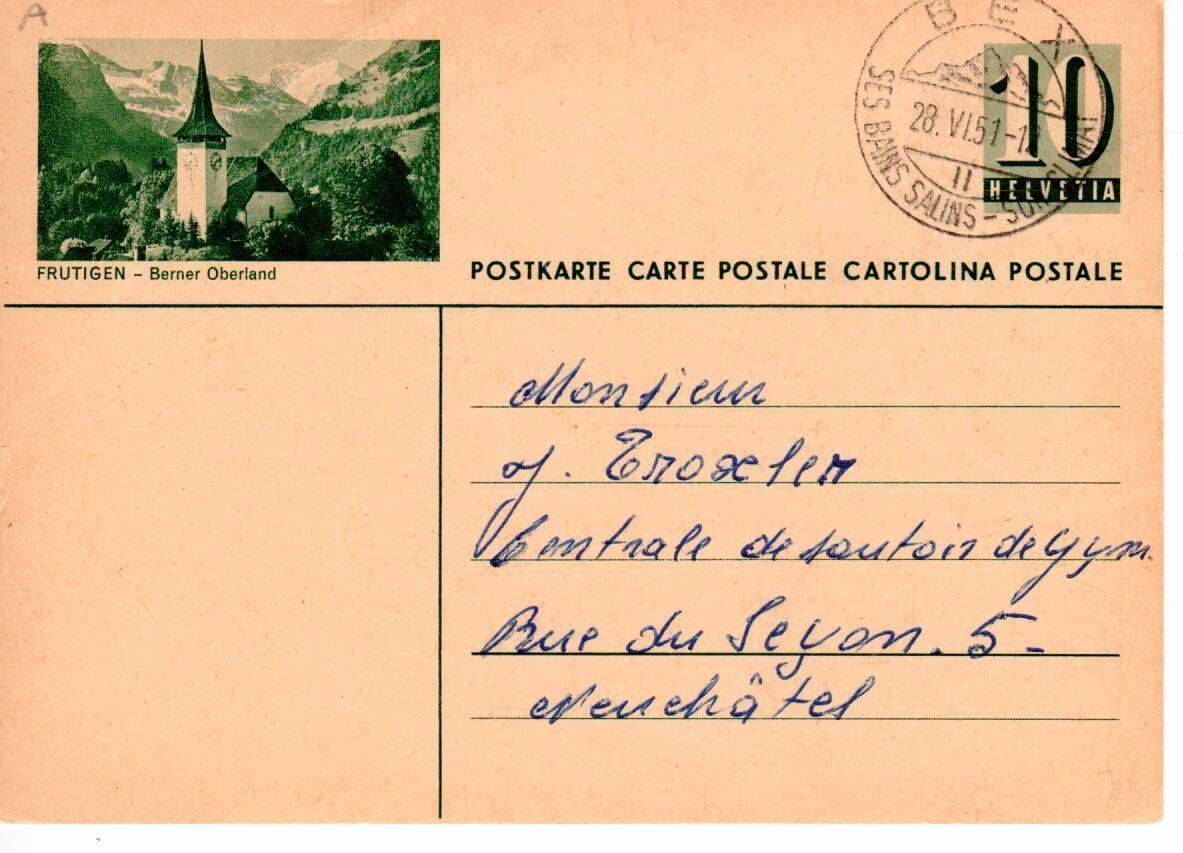 A
BEX
28.VI.51-12
II
SES BAINS SALINS -
10
HELVETIA
FRUTIGEN - Berner Oberland
POSTKARTE CARTE POSTALE CARTOLINA POSTALE
Monsieur
J. Troxler
Centrale de sautoir de Gym.
Rue du Seyon. 5-
Neuchâtel